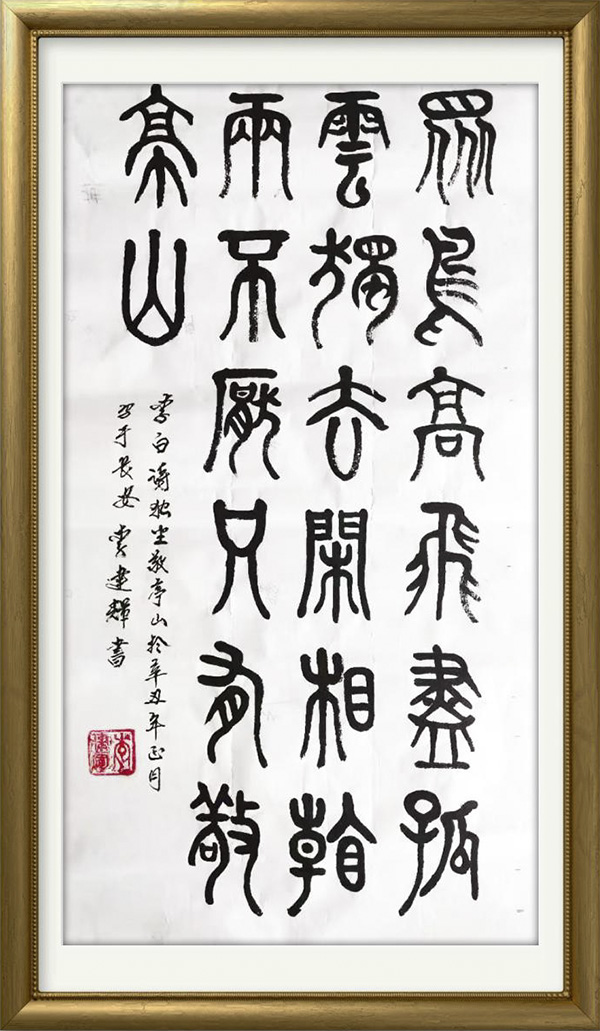 眾鳥高飛盡孤
雲獨去閑相看
兩不厭只有敬
亭山
李白詩独坐敬亭山於辛丑年正月
于長安 李建輝書